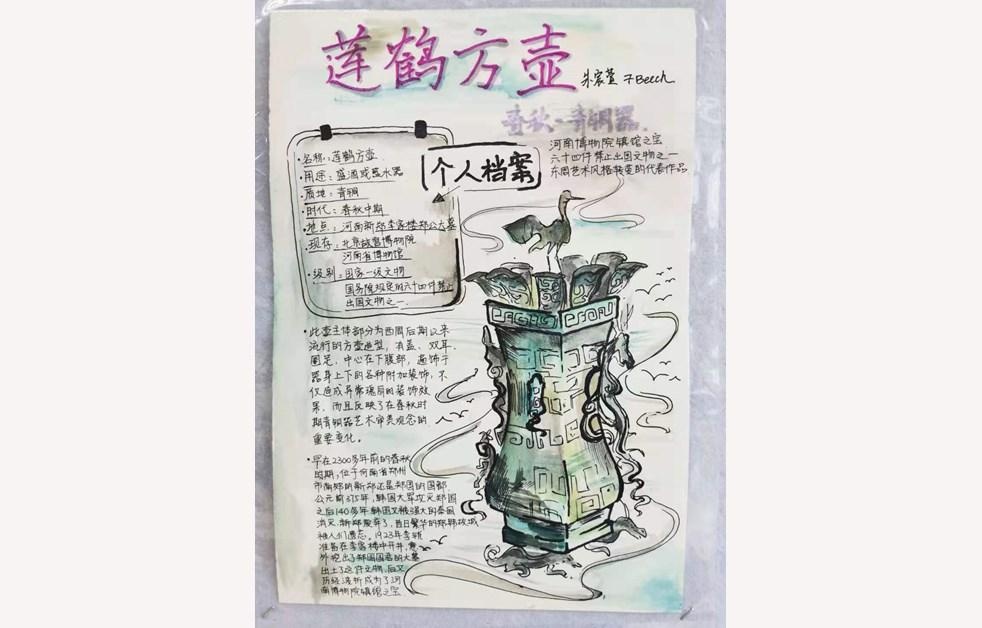 莲鹤方壶
朱宸萱 7Beech
春秋·青铜器
河南博物院镇馆之宝
六十四件禁止出国文物之一
东周艺术风格转变的代表作品
个人档案
·名称：莲鹤方壶
·用途：盛酒或盛水器
·质地：青铜
·时代：春秋中期
·地点：河南新郑李家楼郑公大墓
·现存：北京故宫博物院
河南省博物馆
·级别：国家一级文物
国务院规定的六十四件禁止
出国文物之一
·此壶主体部分为西周后期以来
流行的方壶造型，有盖、双耳、
圈足，中心在下腹部，遍饰于
器身上下的各种附加装饰，不
仅造成异常瑰丽的装饰效
果，而且反映了在春秋时
期青铜器艺术审美观念的
重要变化。
·早在2300多年前的春秋
时期，位于河南省郑州
市南郊的新郑还是郑国的国都
公元前375年，韩国大军攻灭郑国
之后140多年，韩国又被强大的秦国
消灭，新郑废弃了，昔日繁华的郑韩故城
被人们遗忘。1923年李锐
准备在李家楼中开井，意
外挖出了郑国国君的大墓
出土了这件文物，后又
历经波折成为了河
南博物院镇馆之宝